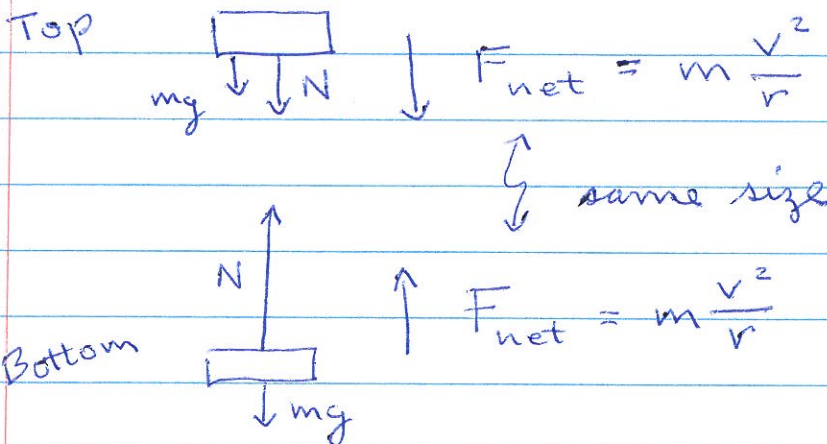 Top
mg N F_net = m v²/r
same size
N F_net = m v²/r
Bottom
mg